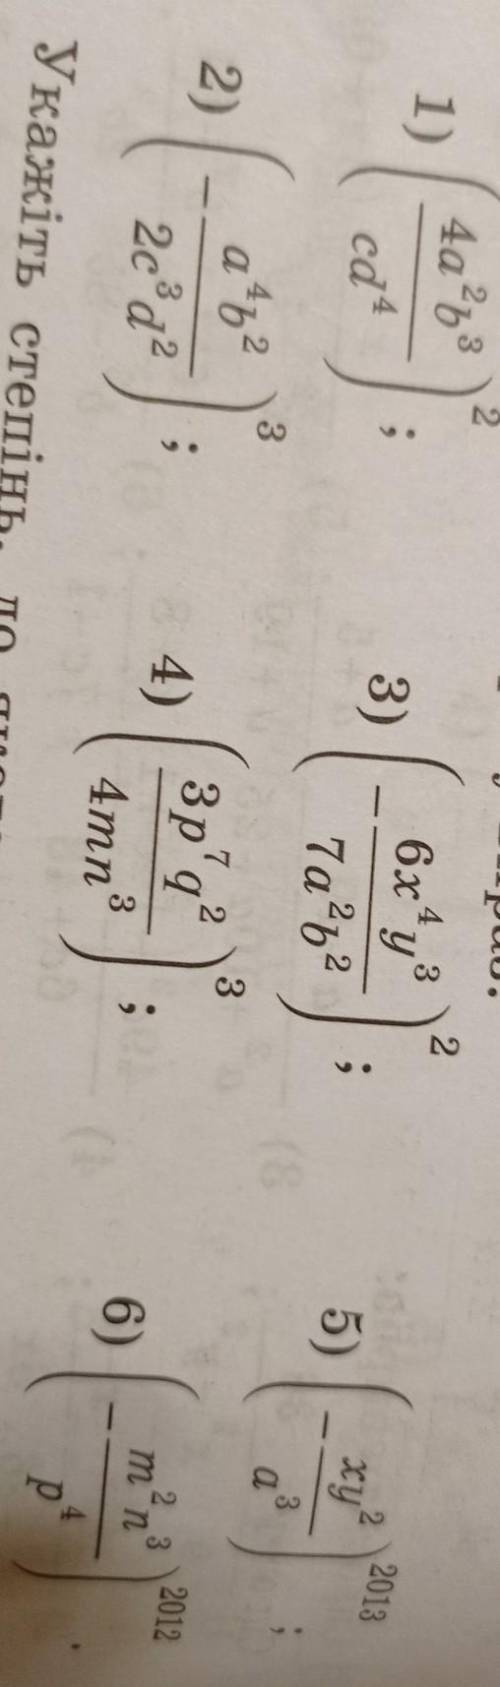 1) (4a²b³/cd⁴)²; 3) (-6x⁴y³/7a²b²)²; 5) (-xy²/a³)²⁰¹³;
2) (-a⁴b²/2c³d²)³; 4) (3p⁷q²/4mn³)³; 6) (-m²n³/p⁴)²⁰¹².
Укажіть степінь, до